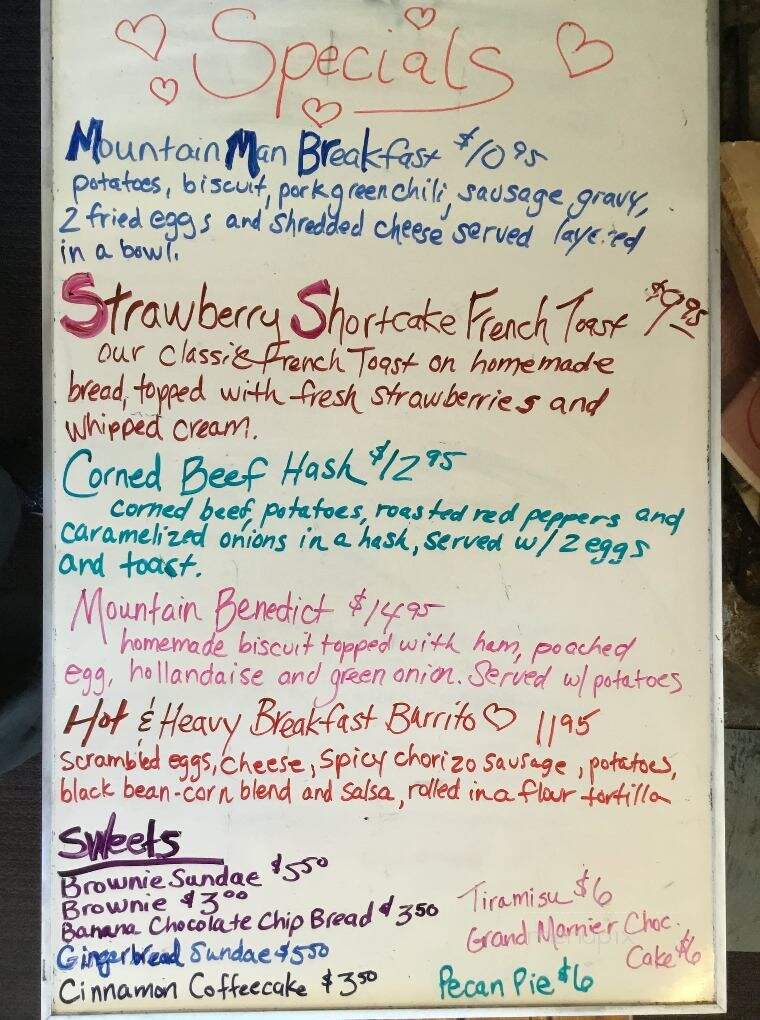 Specials
Mountain Man Breakfast $10.95
potatoes, biscuit, pork green chili, sausage gravy,
2 fried eggs and shredded cheese served layered
in a bowl.
Strawberry Shortcake French Toast $9.95
our classic French Toast on homemade
bread, topped with fresh strawberries and
whipped cream.
Corned Beef Hash $12.95
corned beef, potatoes, roasted red peppers and
caramelized onions in a hash, served w/ 2 eggs
and toast.
Mountain Benedict $14.95
homemade biscuit topped with ham, poached
egg, hollandaise and green onion. Served w/ potatoes
Hot & Heavy Breakfast Burrito ♡ 11.95
scrambled eggs, cheese, spicy chorizo sausage, potatoes,
black bean-corn blend and salsa, rolled in a flour tortilla
Sweets
Brownie Sundae $5.50
Brownie $3.00
Banana Chocolate Chip Bread $3.50
Gingerbread Sundae $5.50
Cinnamon Coffeecake $3.50
Tiramisu $6
Grand Marnier Choc.
Cake $6
Pecan Pie $6